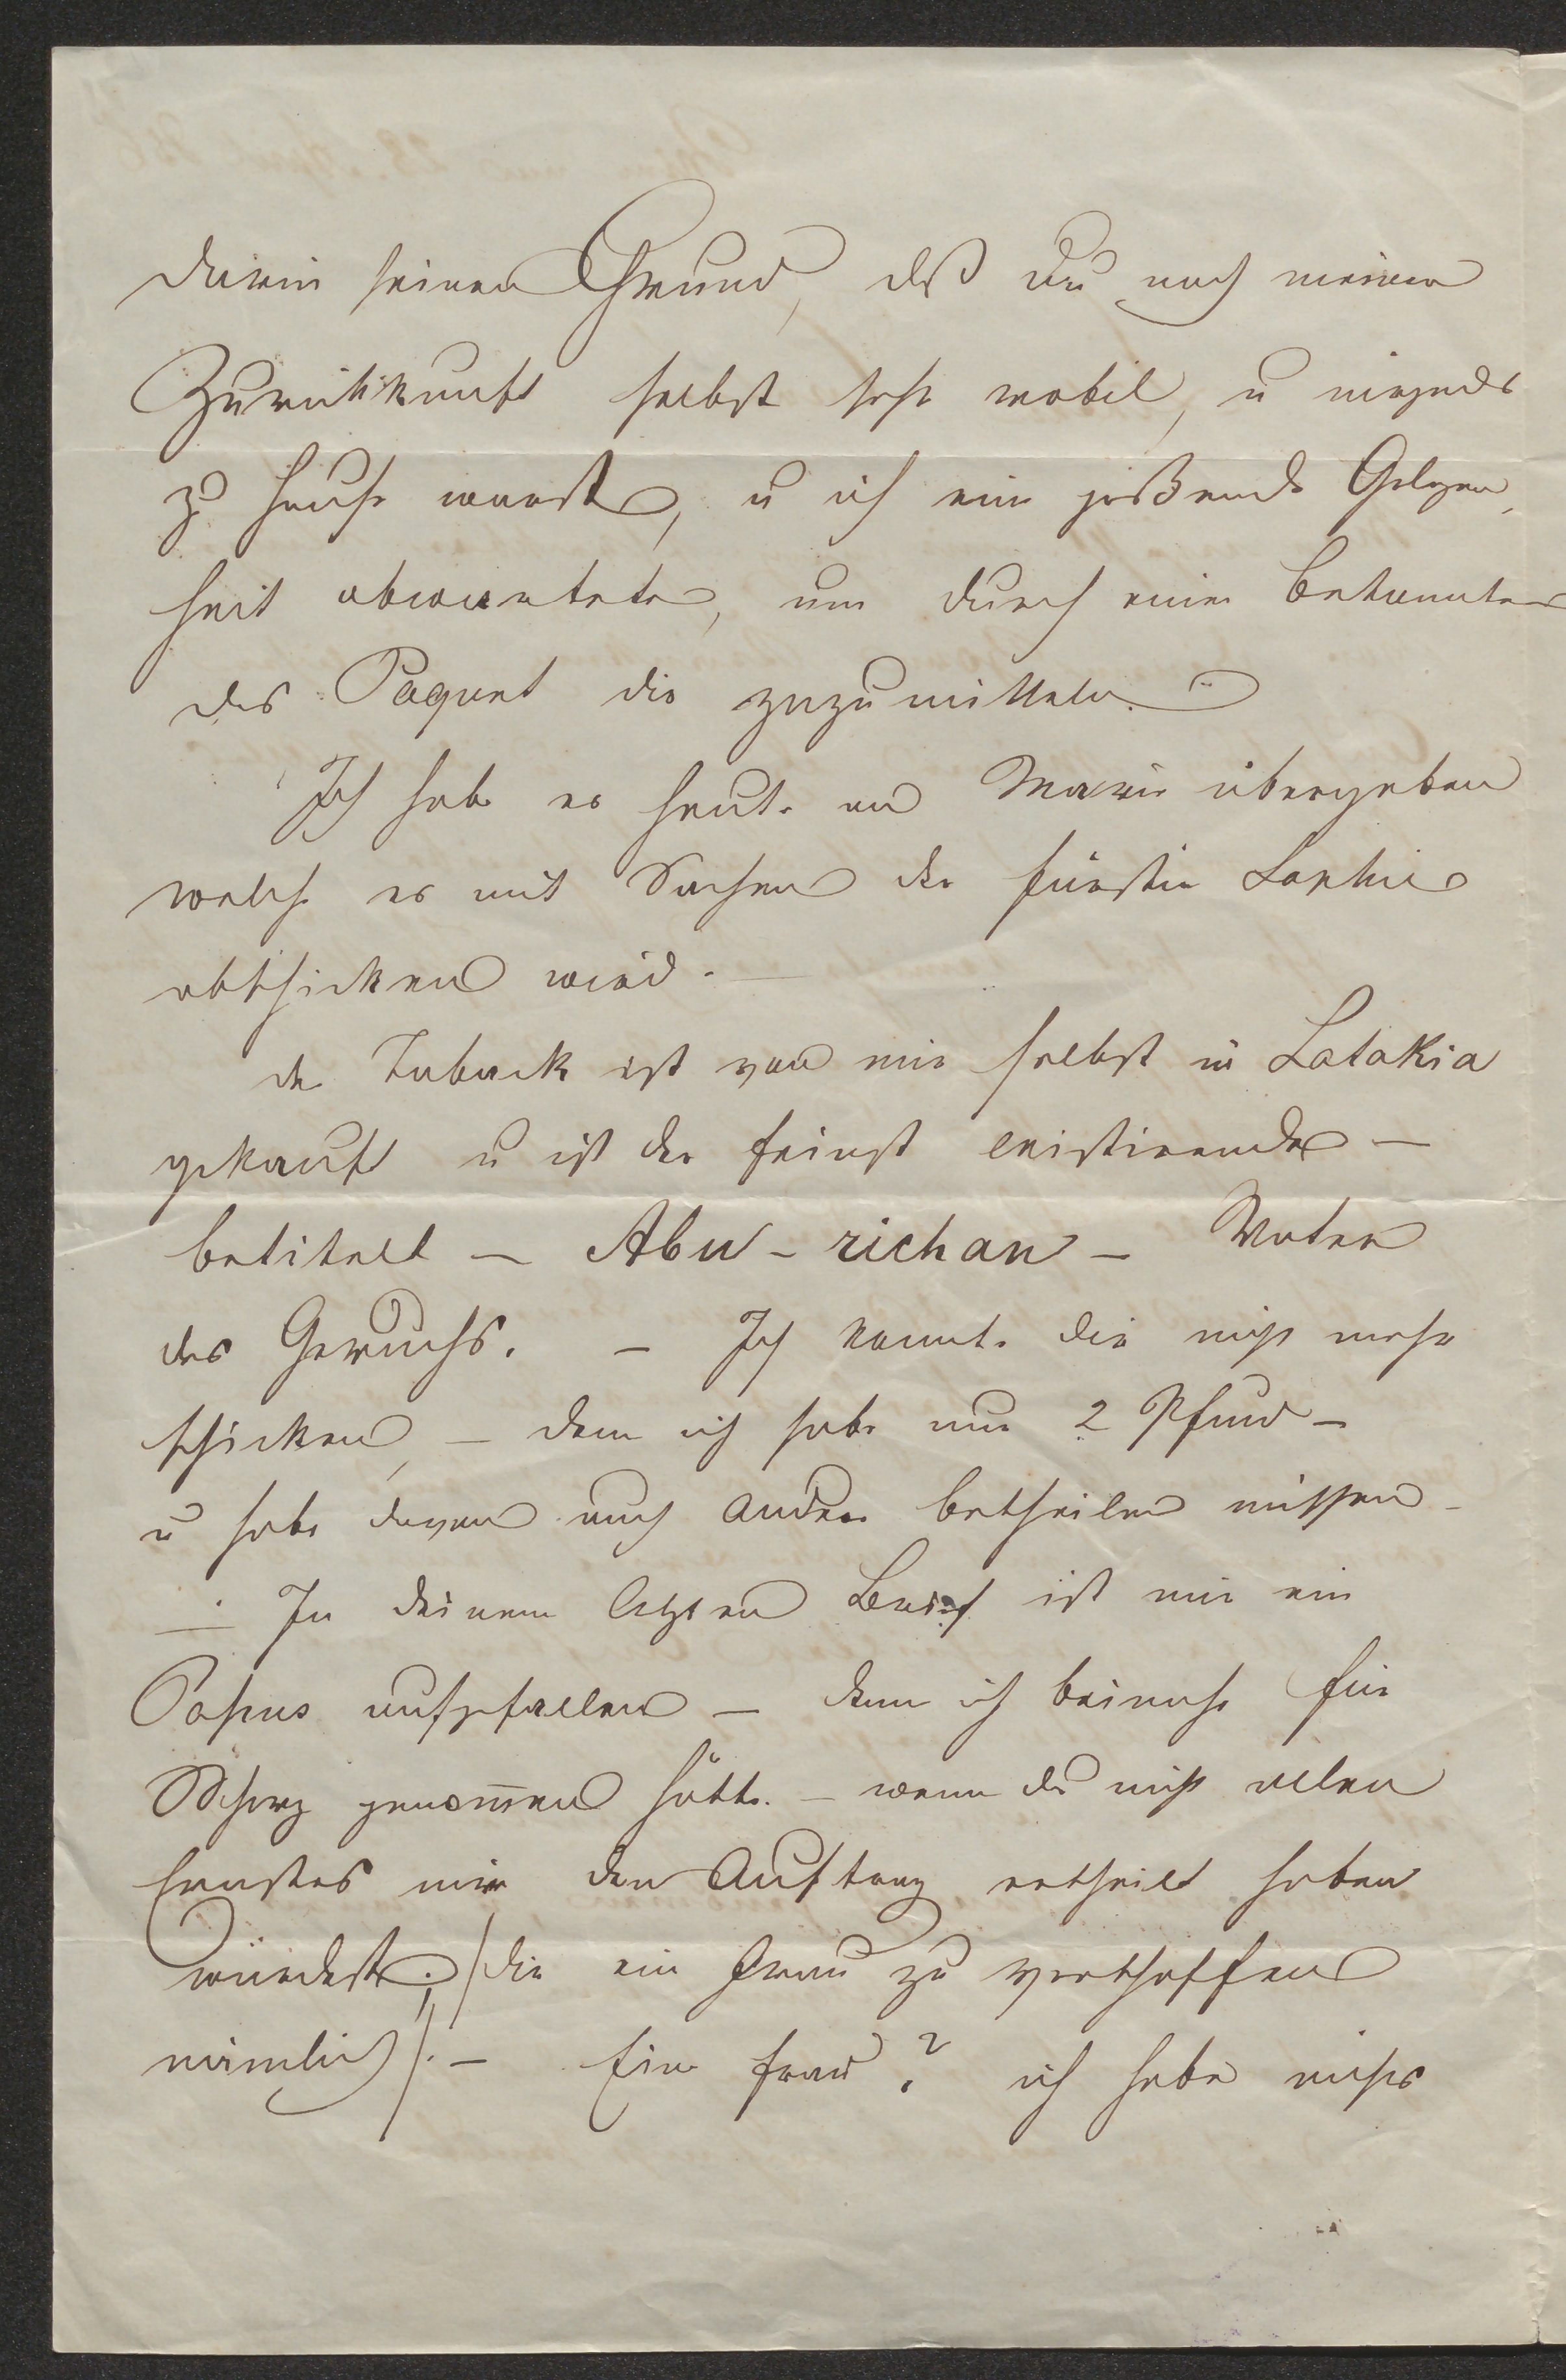 darin seinen Grund, daß du nach meiner
Zurückkunft selbst sehr mobil, u nirgends
zu Hause warst, u ich eine passende Gelegen,
heit abwartete, um durch einen Bekannten
das Paquet dir zuzumitteln.
Ich habe es heute an Marie übergeben
welche es mit Sachen der Fürstin Sophie
abschicken wird.
der Taback ist von mir selbst in Latakia
gekauft u ist der feinst existirende —
betitelt — Abu-richan — Vater
des Geruchs. — Ich konnte dir nicht mehr
schicken, — denn ich habe nur 2 Pfund —
u habe davon auch Andere betheilen müssen —
— In deinem letzten Brief ist mir ein
Passus aufgefallen — den ich beinahe für
Scherz genom̄en hätte — wenn du nicht allen
Ernstes mir den Auftrag ertheilt haben
würdest; /dir eine Frau zu verschaffen
nämlich/. — Eine Frau? ich habe nichts